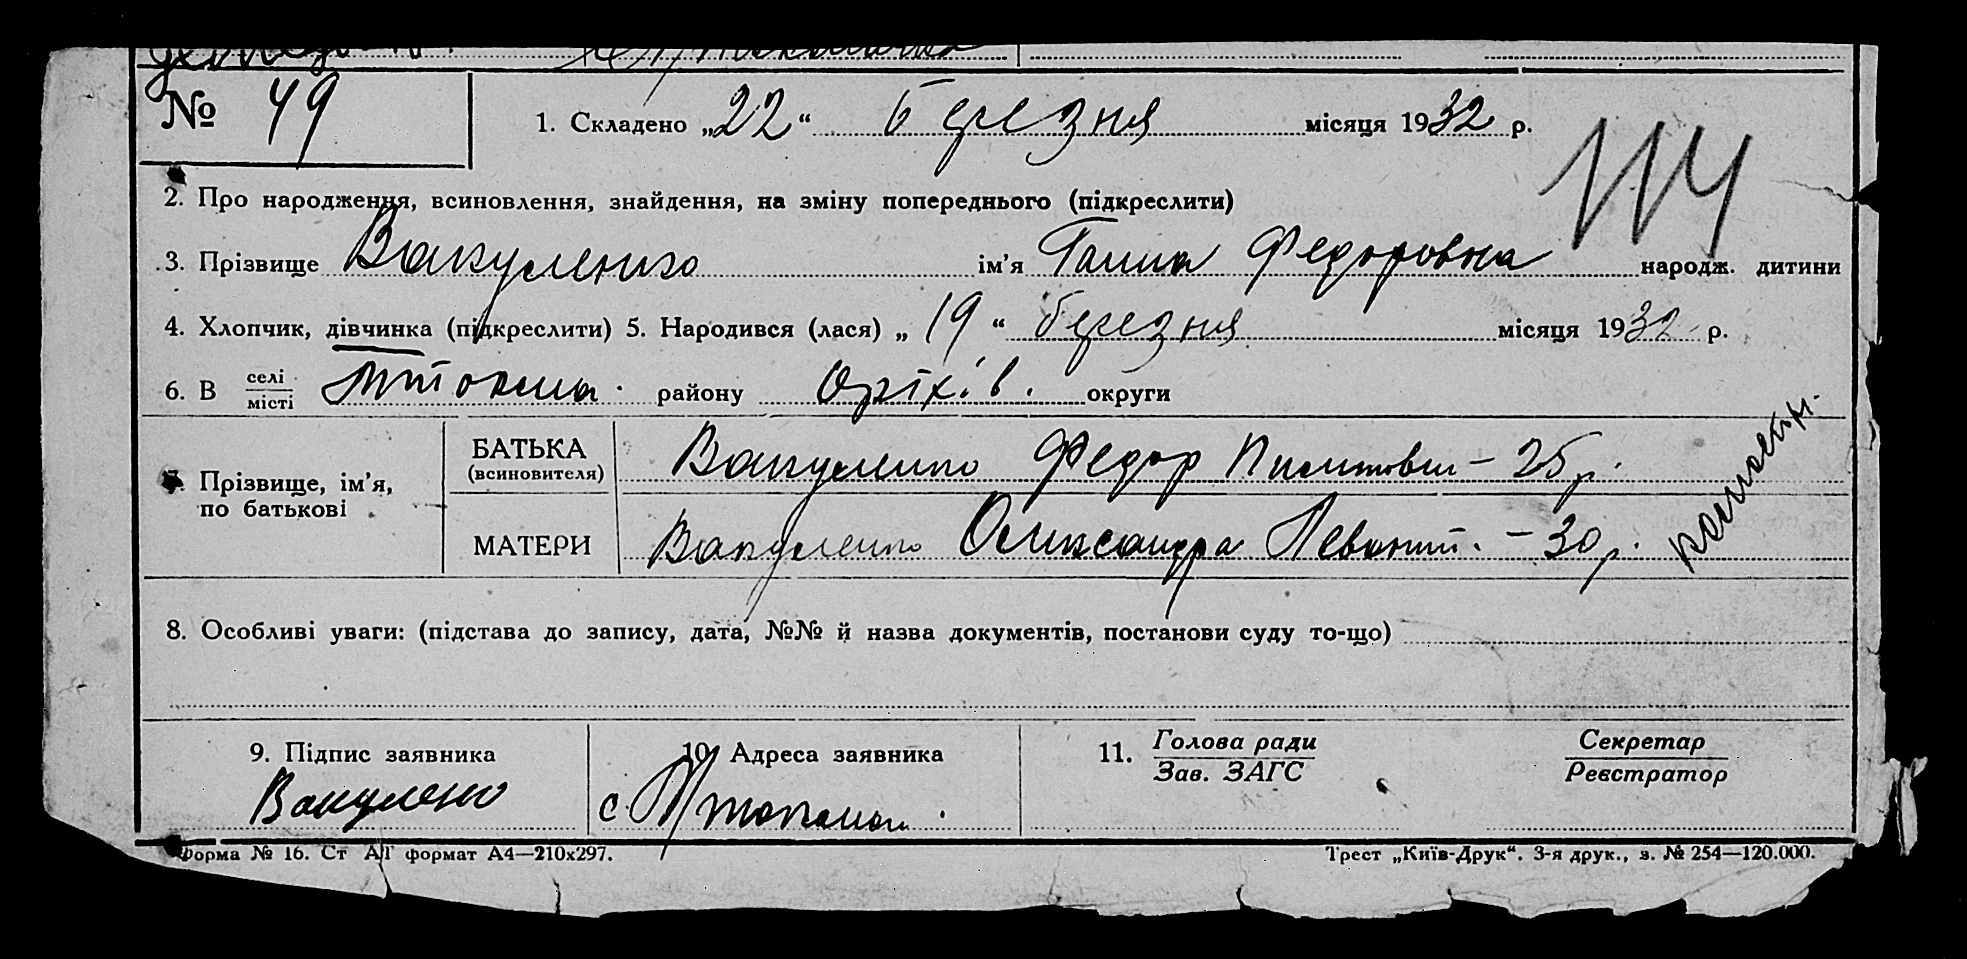 № 49
1. Складено „22“ березня місяця 1932 р.
114
2. Про народження, всиновлення, знайдення, на зміну попереднього (підкреслити)
3. Прізвище Вакуленко ім’я Ганна Федоровна народж. дитини
4. Хлопчик, дівчинка (підкреслити) 5. Народився (лася) „19“ березня місяця 1932 р.
6. В селі/місті району Оріхів. округи
7. Прізвище, ім’я, по батькові
БАТЬКА (всиновителя) Вакуленко Федор – 25 р.
МАТЕРИ Вакуленко Олександра Левонт. – 30 р.
8. Особливі уваги: (підстава до запису, дата, №№ й назва документів, постанови суду то-що)
9. Підпис заявника
Вакуленко
10. Адреса заявника
с.
11. Голова ради
Зав. ЗАГС
Секретар
Реєстратор
Форма № 16. Ст АГ формат А4—210х297.
Трест „Київ-Друк“. 3-я друк., з. № 254—120.000.